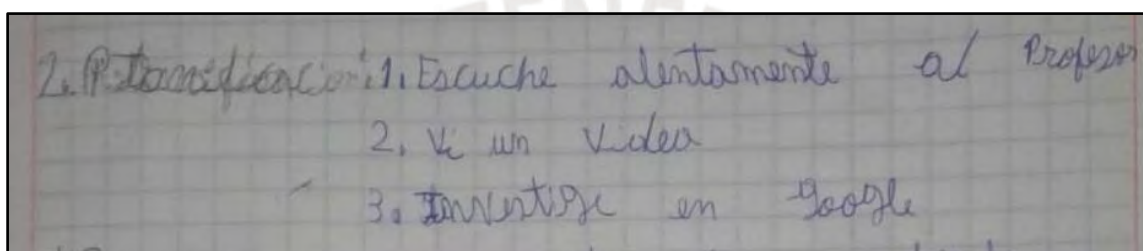 2. Planificación: 1. Escuche atentamente al Profesor
2. Vi un Video
3. Investige en google